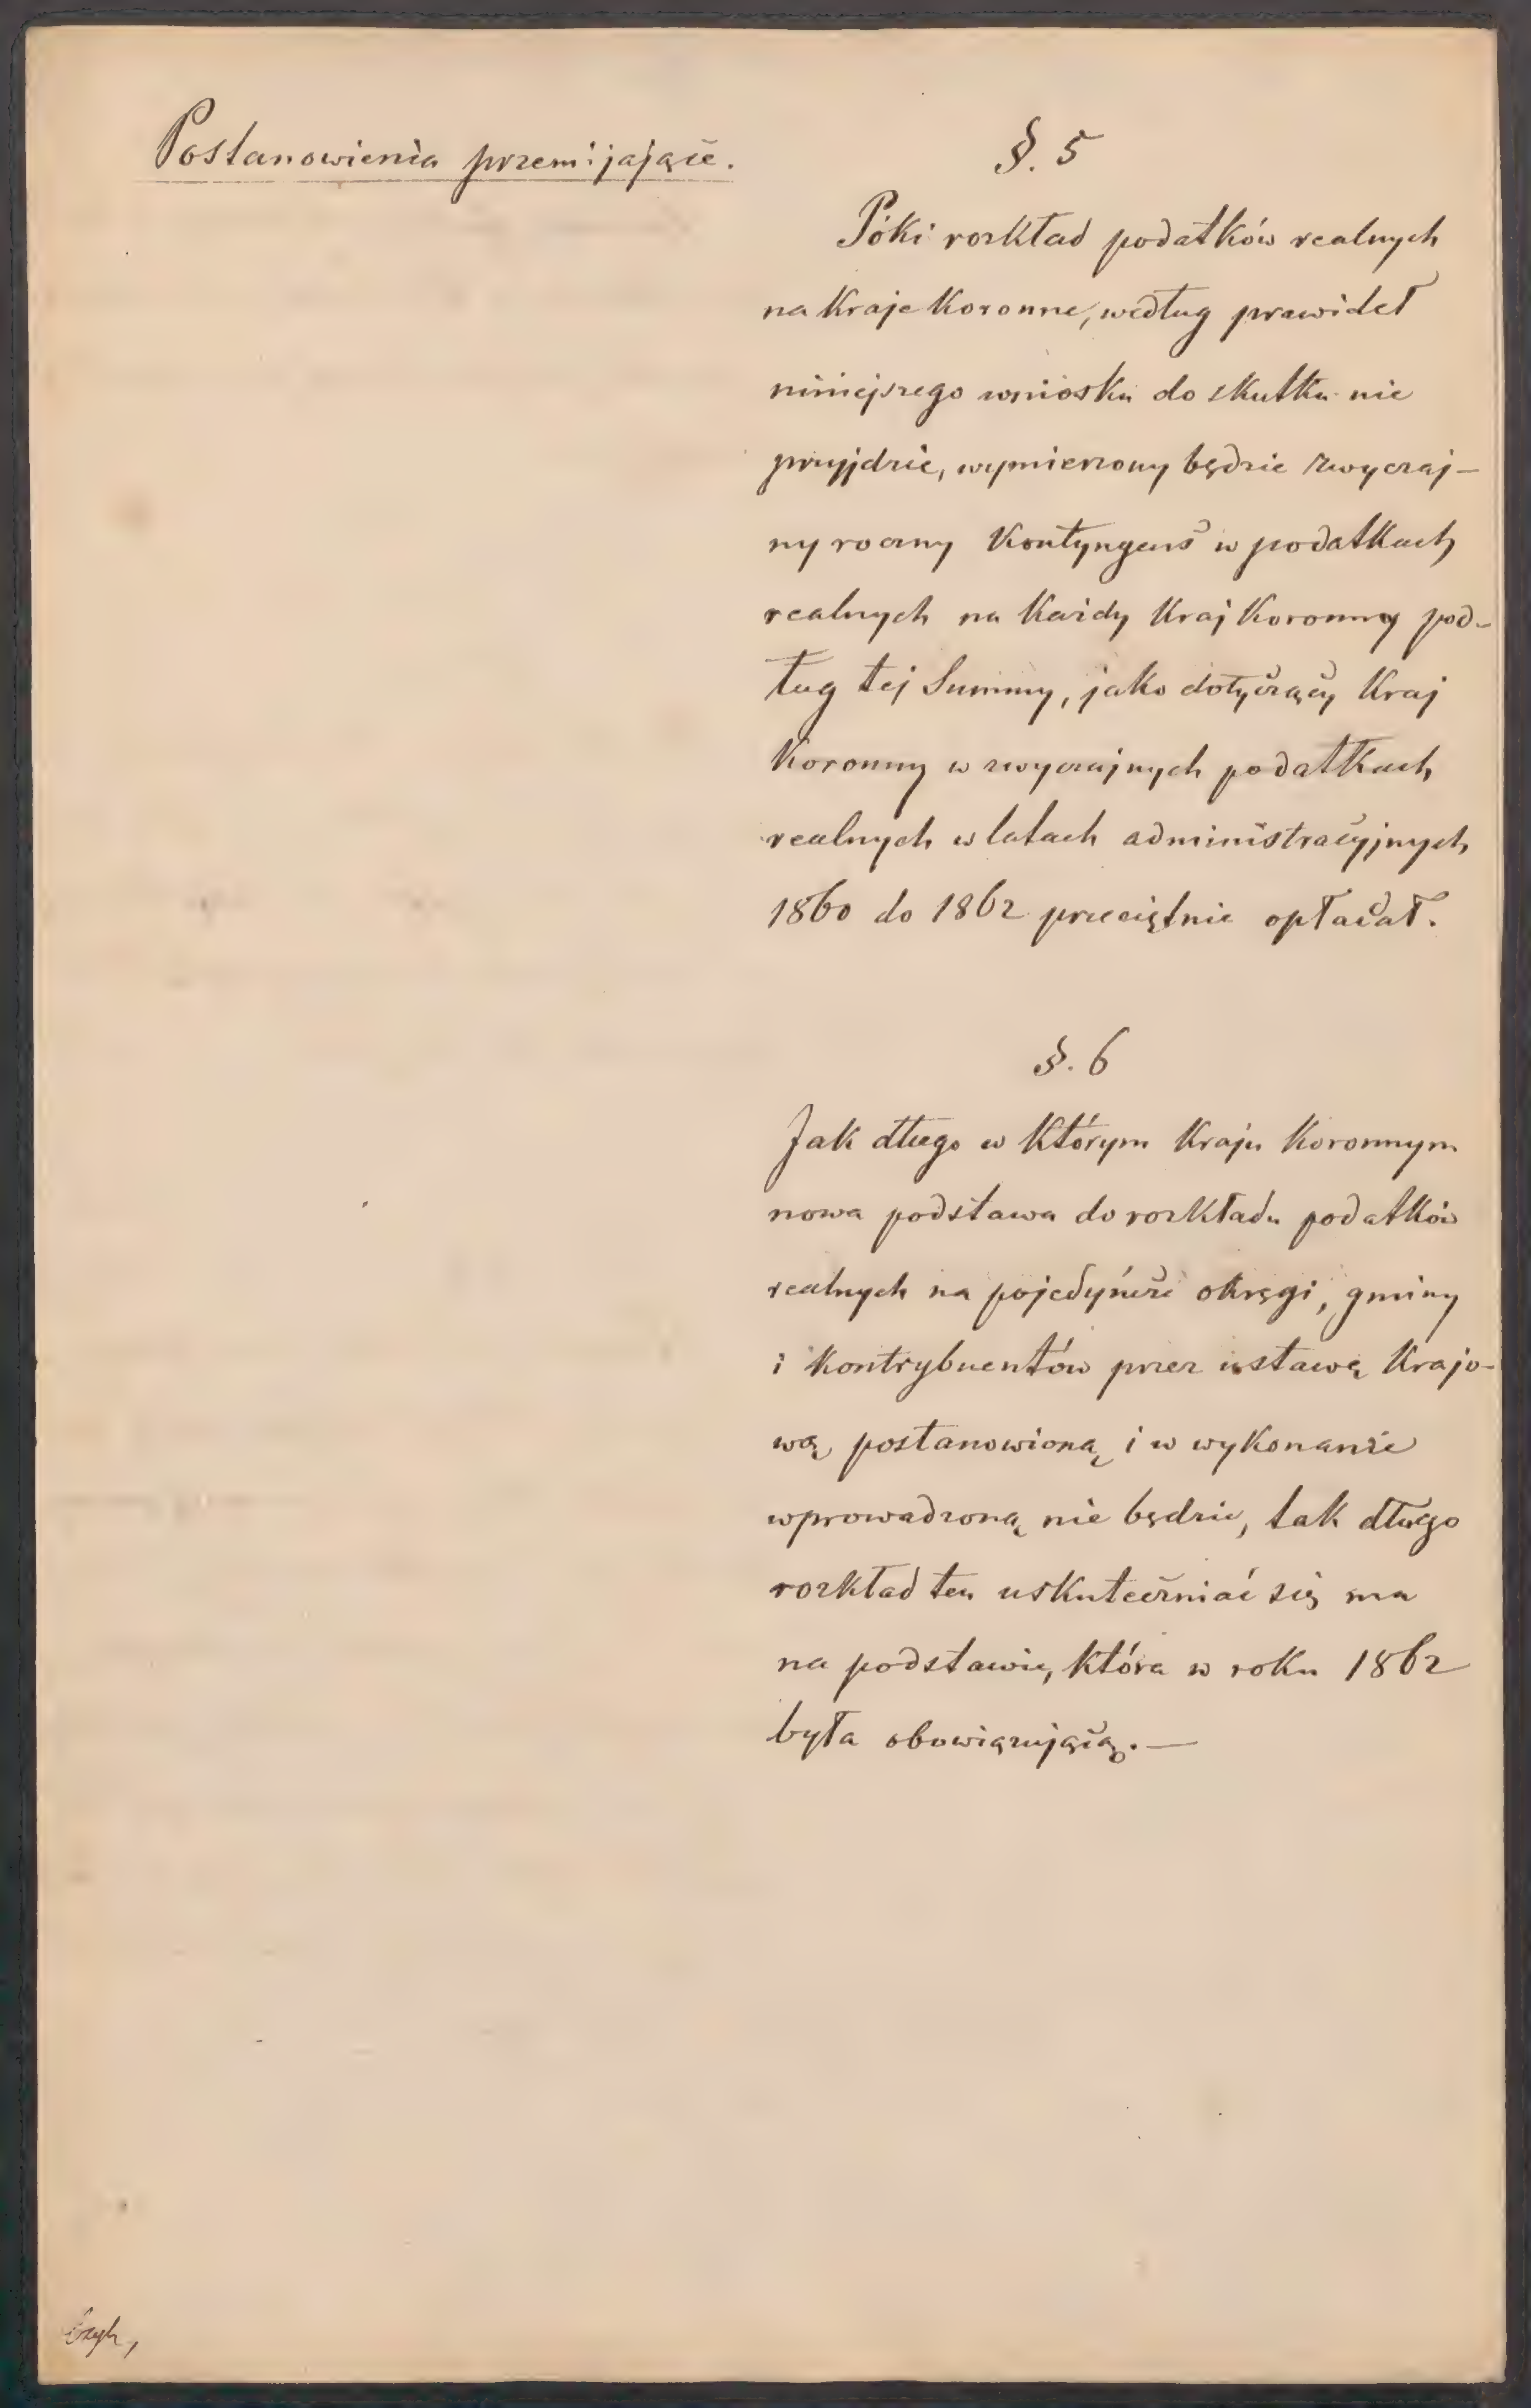 Postanowienia przemijające.
§. 5
Póki rozkład podatków realnych
na Kraje Koronne, według prawideł
niniejszego wniosku do skutku nie
przyjdzie, wymierzony będzie zwyczaj-
ny roczny Kontyngens w podatkach
realnych na Każdy Kraj Koronny pod-
ług tej Summy, jako dotyczący Kraj
Koronny w zwyczajnych podatkach
realnych w latach administracyjnych
1860 do 1862 przeciętnie opłacał.
§. 6
Jak długo w Którym Kraju Koronnym
nowa podstawa do rozkładu podatków
realnych na pojedyńcze okręgi, gminy
i Kontrybuentów przez ustawę Krajo-
wą postanowioną i w wykonanie
wprowadzoną nie będzie, tak długo
rozkład ten uskuteczniać się ma
na podstawie, która w roku 1862
była obowiązującą.—